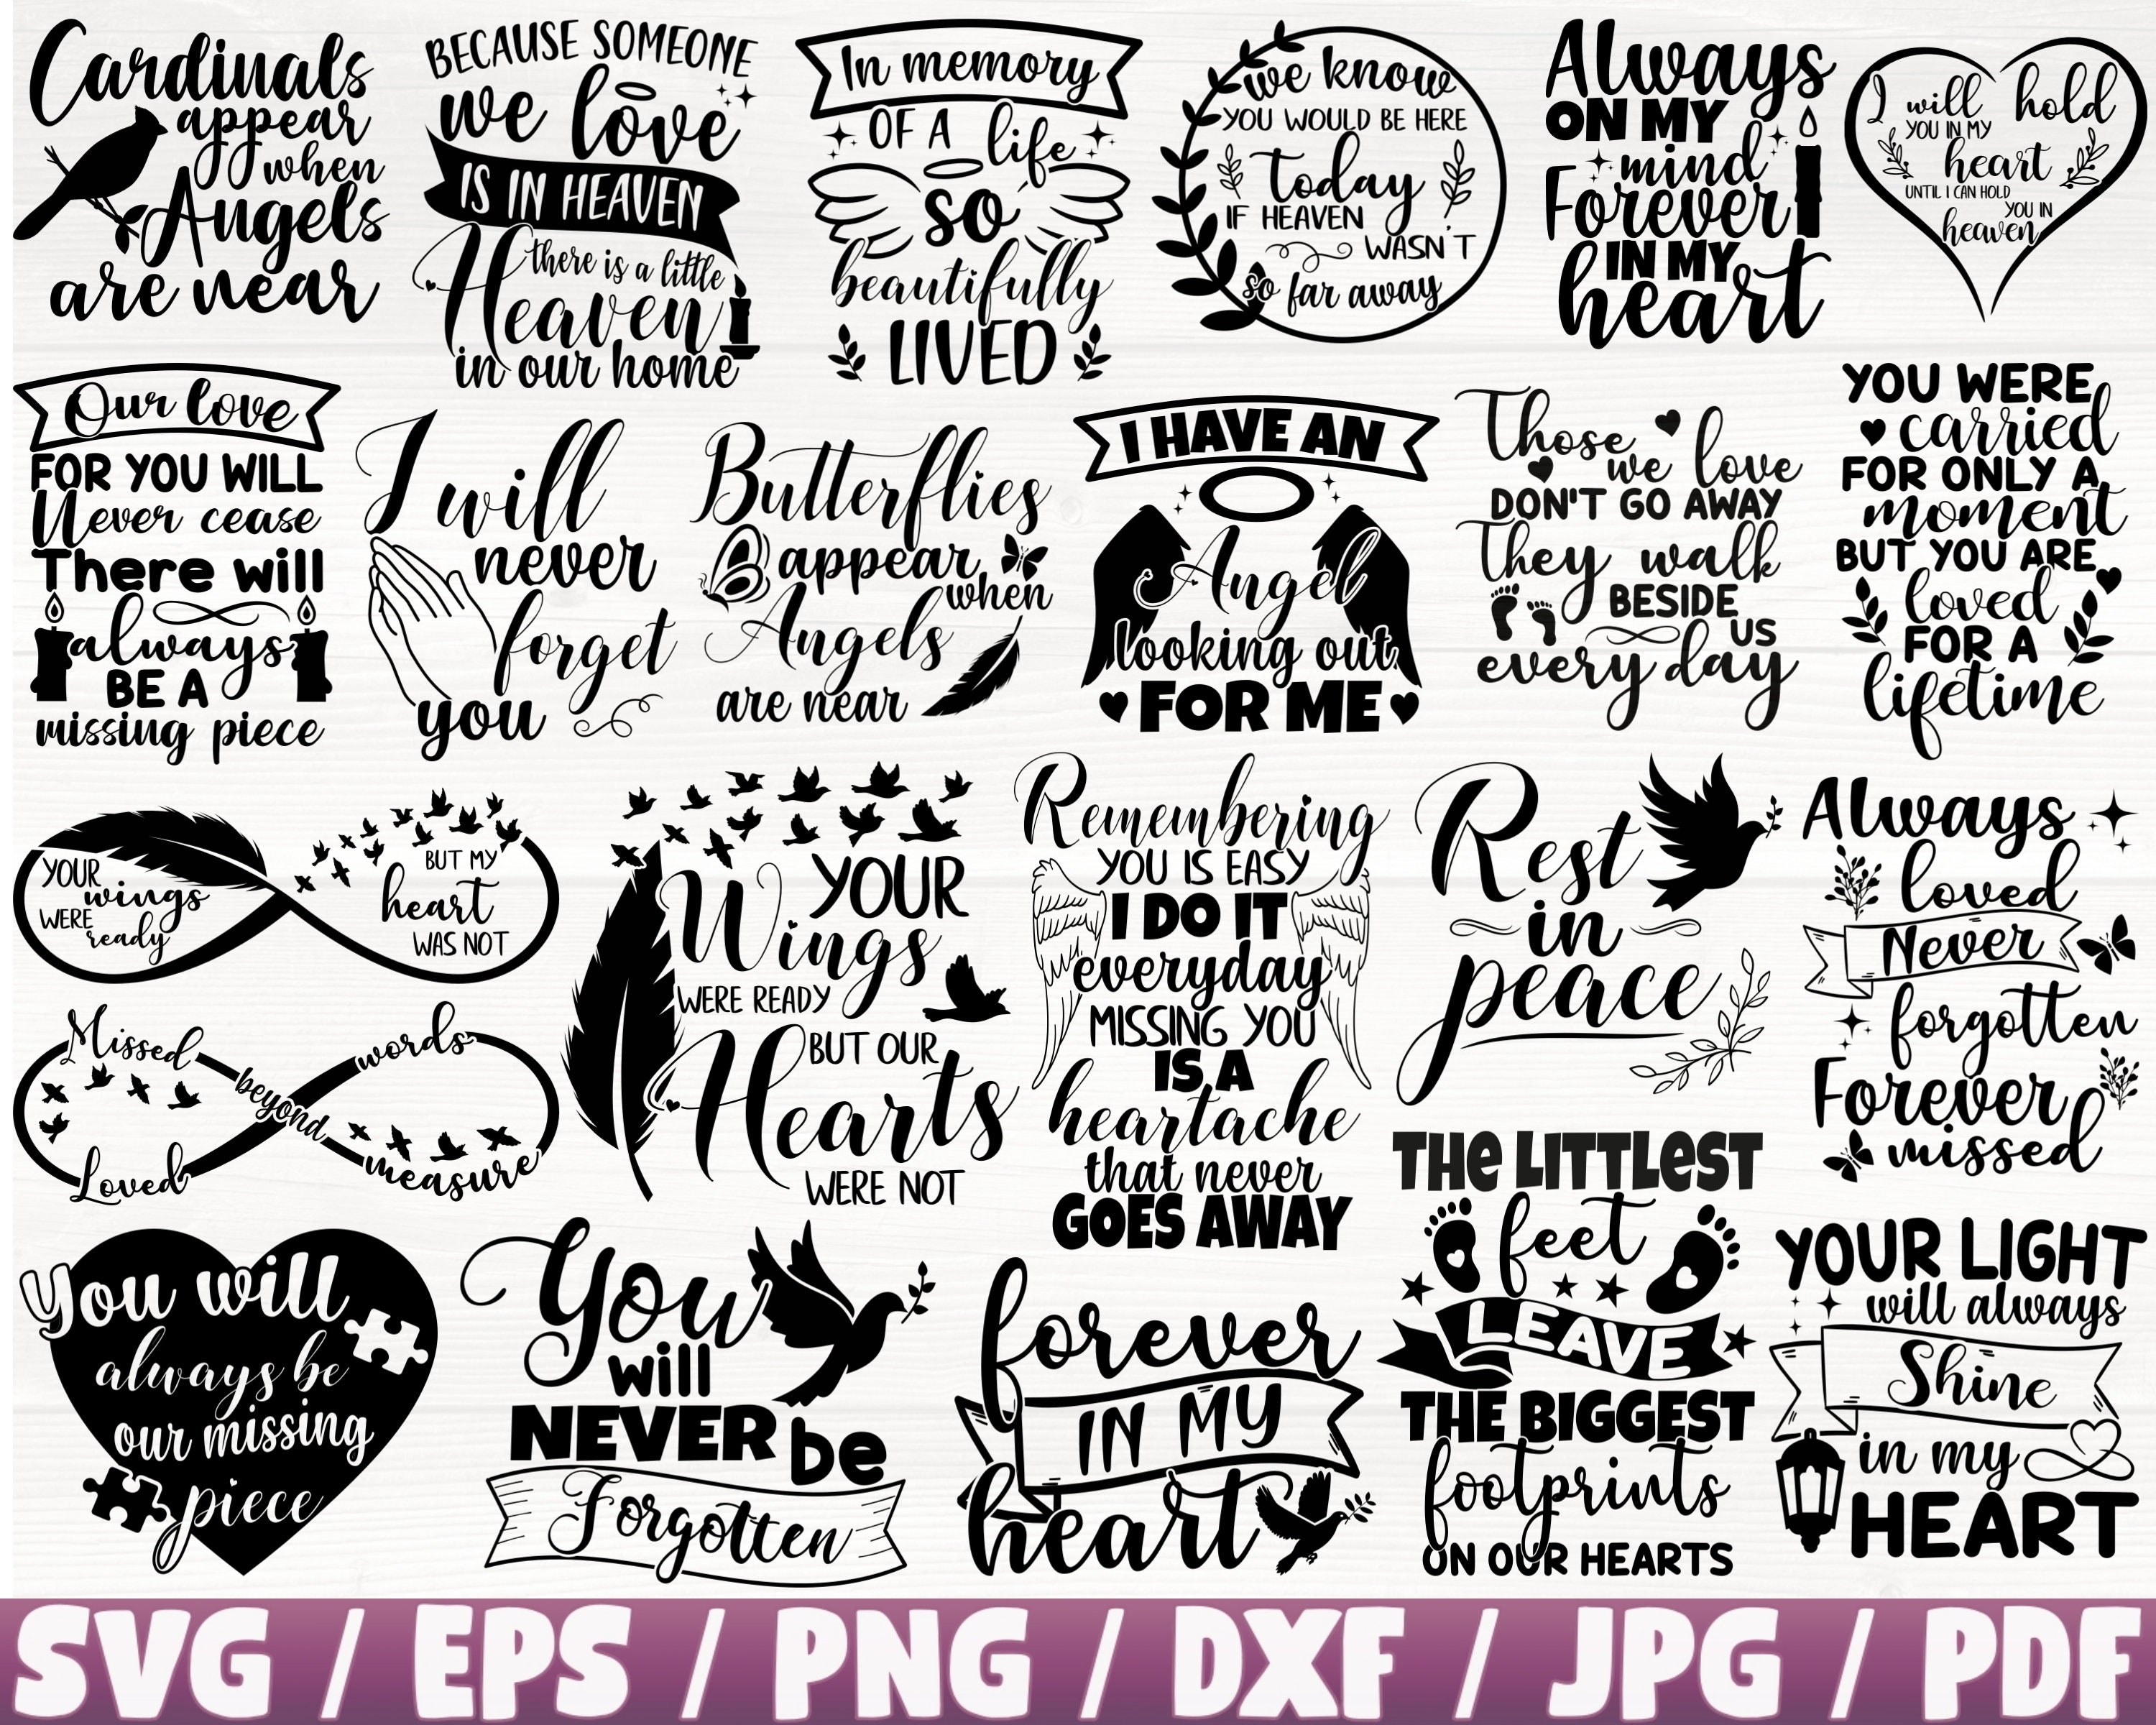 Cardinals
appear
when
Angels
are near
BECAUSE SOMEONE
we love
IS IN HEAVEN
there is a little
Heaven
in our home
In memory
OF A life
so
beautifully
LIVED
we know
YOU WOULD BE HERE
today
IF HEAVEN
WASN'T
so far away
Always
ON MY
mind
Forever
IN MY
heart
I will hold
YOU IN MY
heart
UNTIL I CAN HOLD
YOU IN
heaven
Our love
FOR YOU WILL
Never cease
There will
always
BE A
missing piece
I will
never
forget
you
Butterflies
appear
when
Angels
are near
I HAVE AN
Angel
looking out
FOR ME
Those
we love
DON'T GO AWAY
They walk
BESIDE
US
every day
YOU WERE
carried
FOR ONLY A
moment
BUT YOU ARE
loved
FOR A
lifetime
YOUR
wings
WERE
ready
BUT MY
heart
WAS NOT
YOUR
Wings
WERE READY
BUT OUR
Hearts
WERE NOT
Remembering
YOU IS EASY
I DO IT
everyday
MISSING YOU
IS A
heartache
that never
GOES AWAY
Rest
in
peace
Always
loved
Never
forgotten
Forever
missed
Missed
beyond
words
Loved
measure
You will
always be
our missing
piece
You
will
NEVER be
Forgotten
forever
IN MY
heart
THE LITTLEST
feet
LEAVE
THE BIGGEST
footprints
ON OUR HEARTS
YOUR LIGHT
will always
Shine
in my
HEART
SVG / EPS / PNG / DXF / JPG / PDF